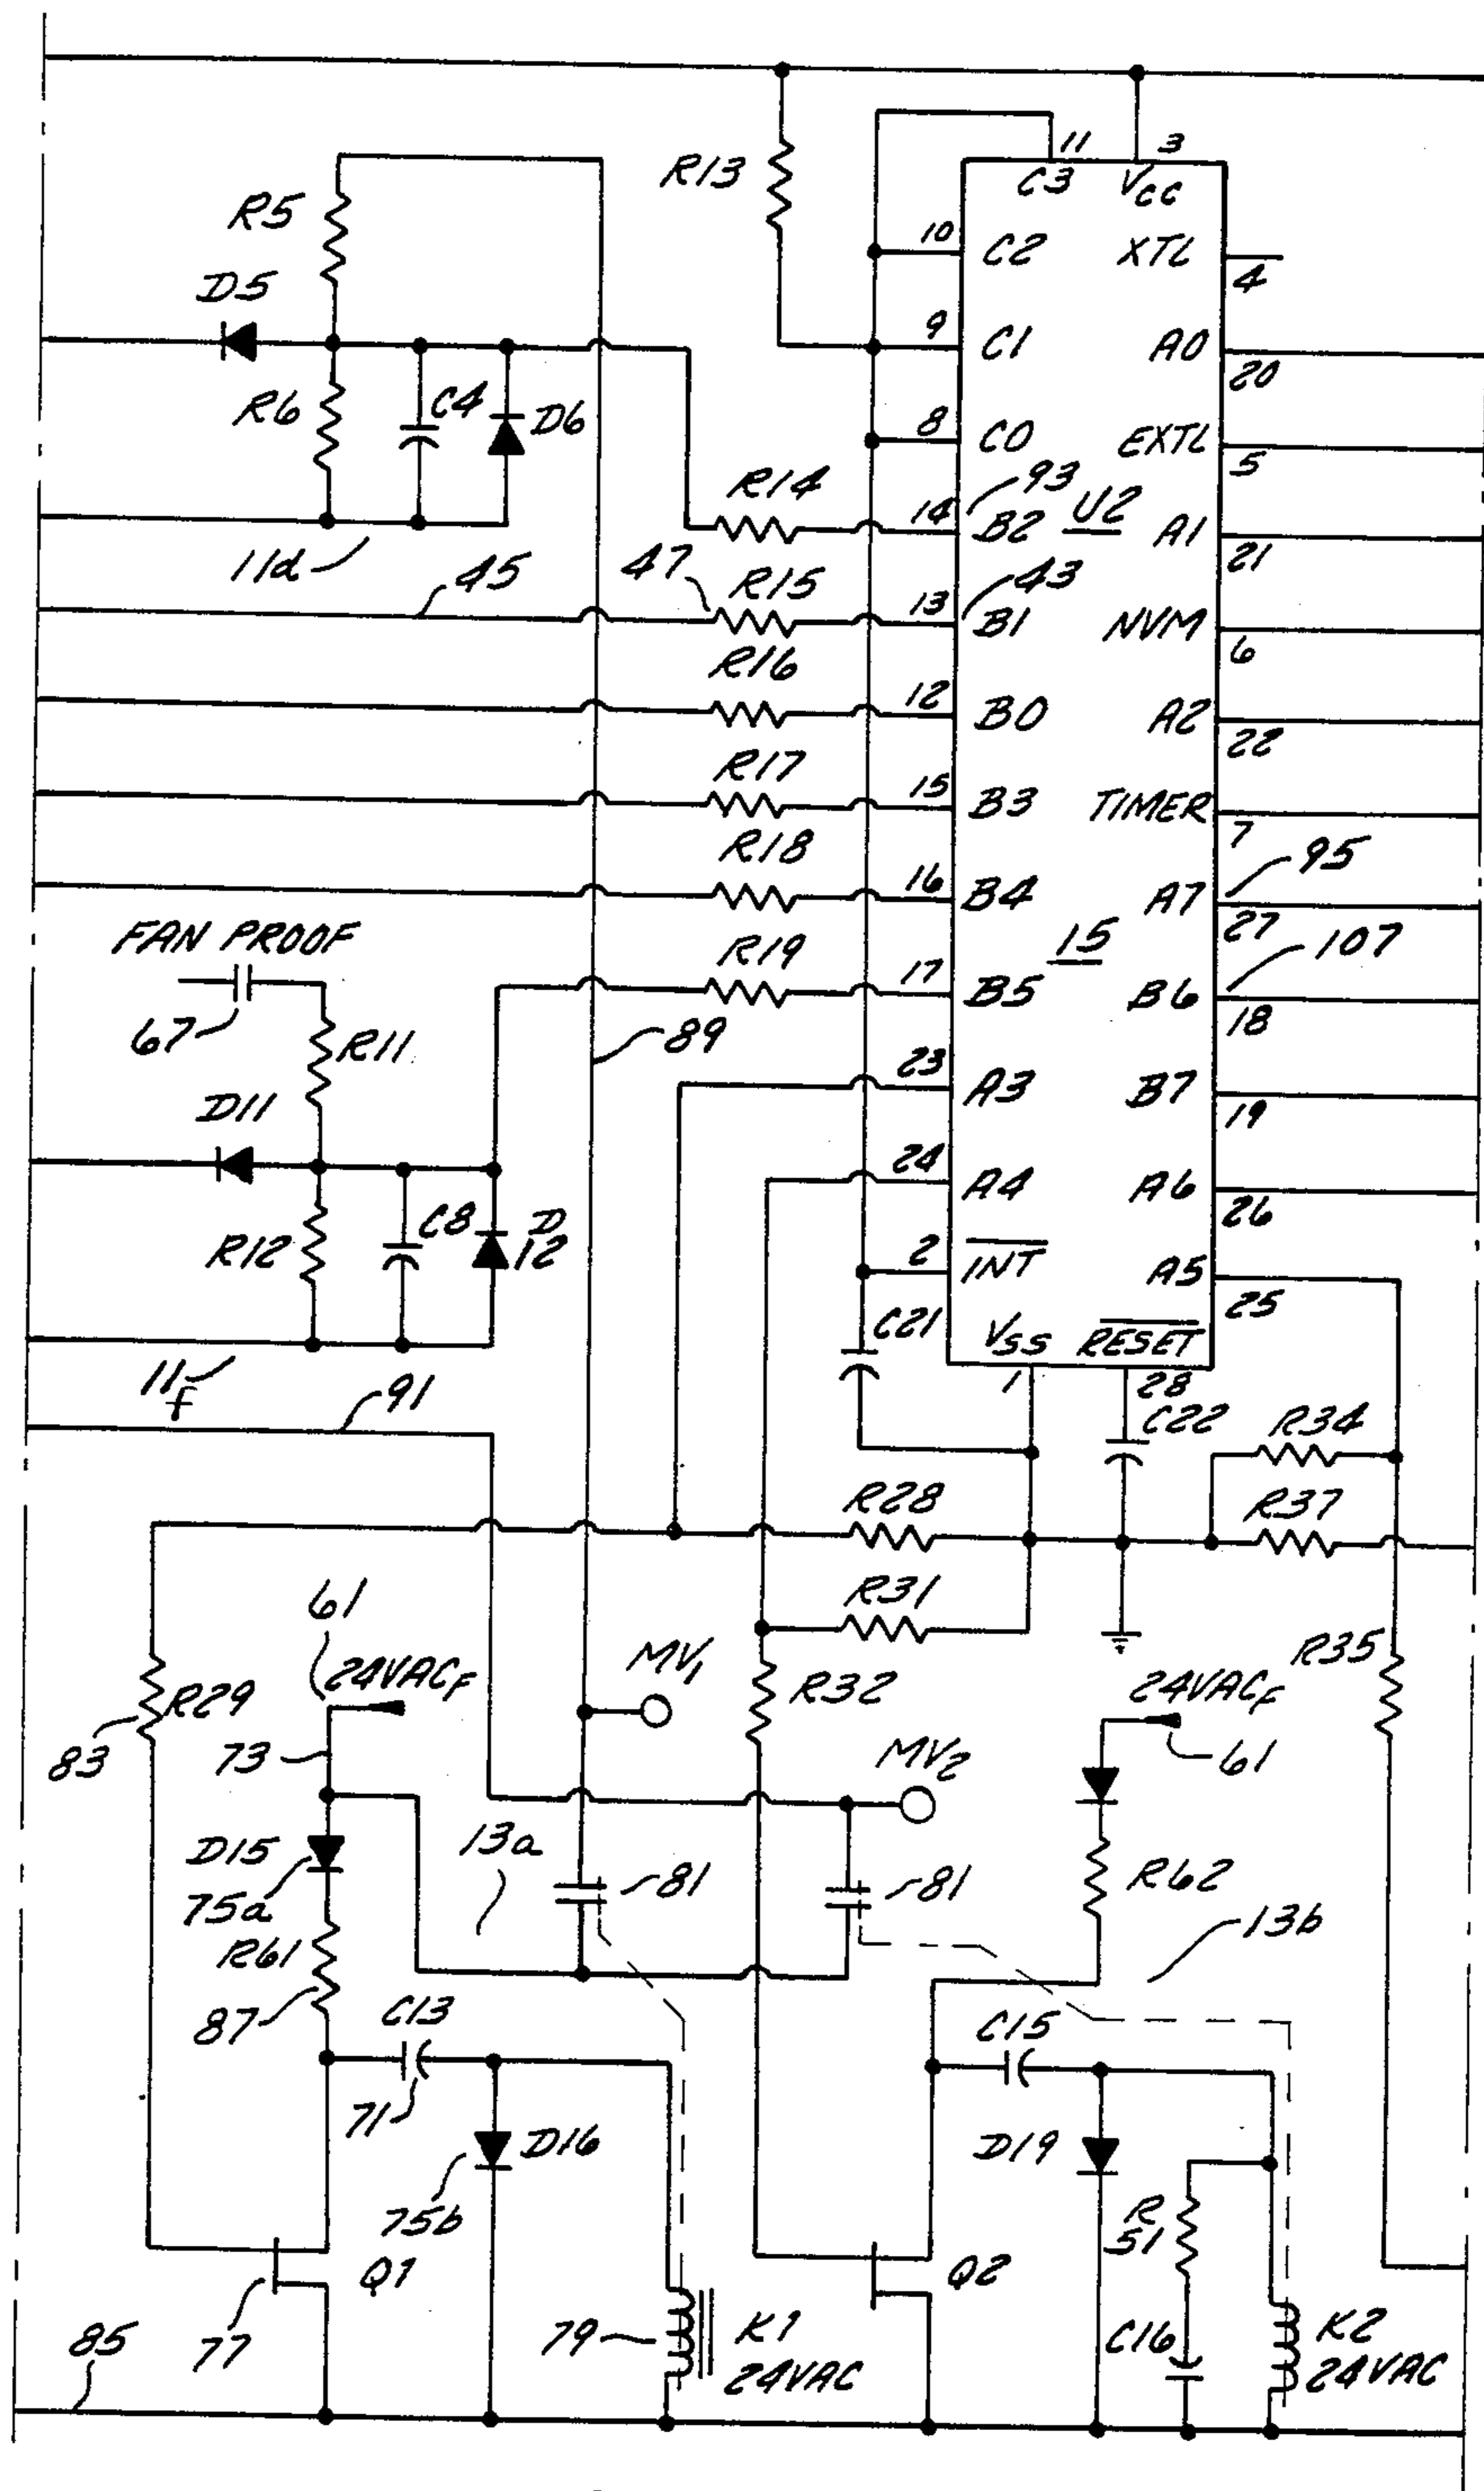 11 3
R13 C3 VCC
R5 10 C2 XTL 4
D5 9 C1 A0 20
R6 C4 D6 8 C0 EXTL 5
R14 14 93 B2 U2 A1 21
11d 45 47 R15 13 43 B1 NVM 6
R16 12 B0 A2 22
R17 15 B3 TIMER 7
R18 16 B4 A7 95 27
FAN PROOF R19 17 15 B5 B6 107 18
67 R11 89 23 A3 B7 19
D11 24 A4 A6 26
R12 C8 D12 2 INT A5 25
11f C21 VSS RESET
91 1 28 C22 R34
R28 R37
61 R31
R29 24VACF MV1 R32 24VACF R35
83 73 MV2 61
D15 13a 81 81 R62
75a 13b
R61
87 C13 C15
71 D16 D19 R51
75b
Q1 Q2
85 77 79 K1 C16 K2
24VAC 24VAC